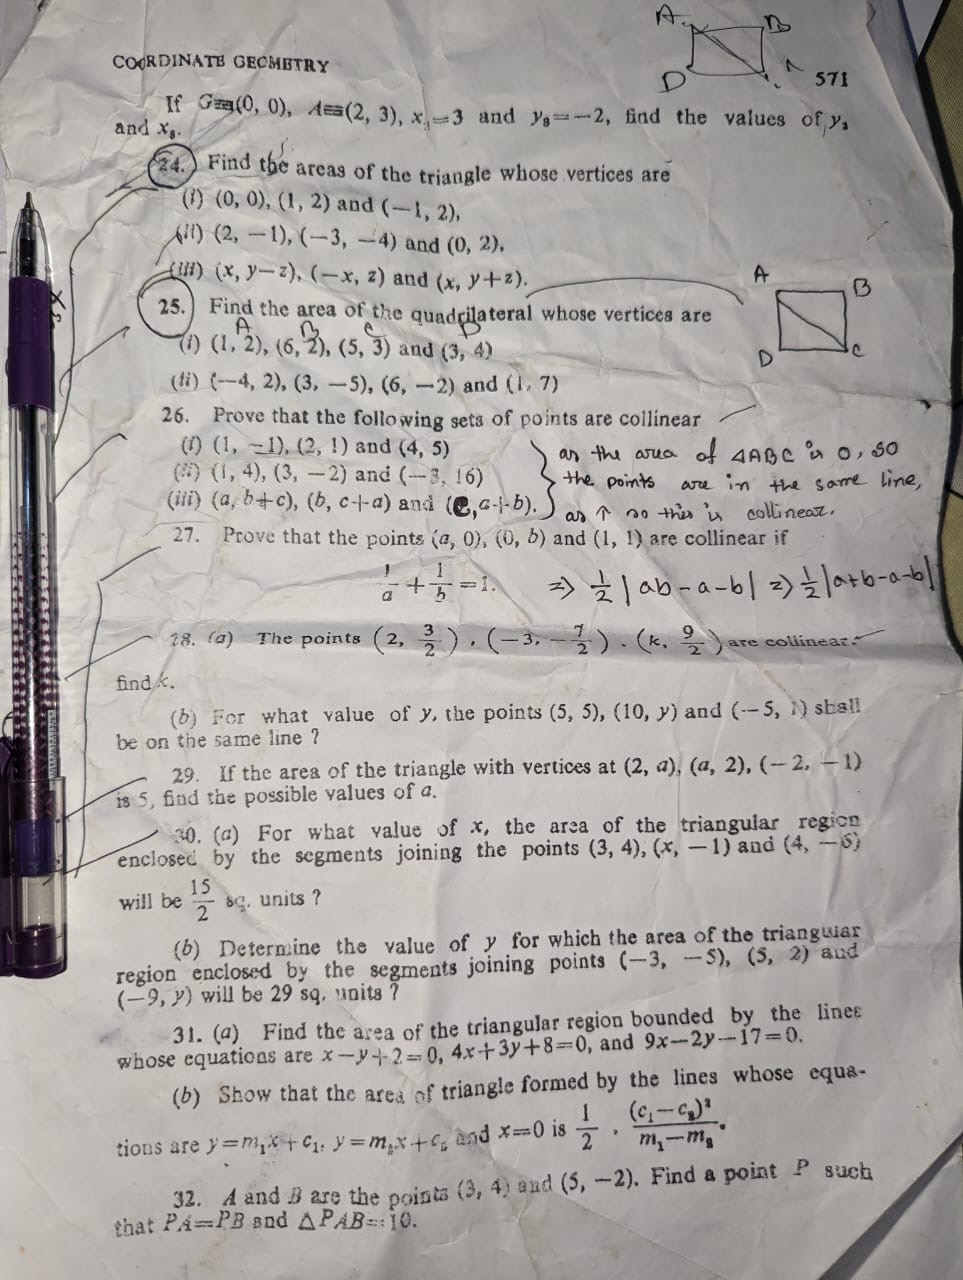 A B
D
COORDINATE GEOMETRY 571
If G≡(0, 0), A≡(2, 3), x₂=3 and y₃=−2, find the values of y₂
and x₃.
24. Find the areas of the triangle whose vertices are
(i) (0, 0), (1, 2) and (−1, 2),
(ii) (2, −1), (−3, −4) and (0, 2),
(iii) (x, y−z), (−x, z) and (x, y+z).
A B
25. Find the area of the quadrilateral whose vertices are
A B C D
(i) (1, 2), (6, 2), (5, 3) and (3, 4)
D C
(ii) (−4, 2), (3, −5), (6, −2) and (1, 7)
26. Prove that the following sets of points are collinear
(i) (1, −1), (2, 1) and (4, 5) as the area of △ABC is 0, so
(ii) (1, 4), (3, −2) and (−3, 16) the points are in the same line,
(iii) (a, b+c), (b, c+a) and (c, a+b). as ↑ so this is collinear.
27. Prove that the points (a, 0), (0, b) and (1, 1) are collinear if
1/a + 1/b = 1. ⇒ 1/2 | ab−a−b | ⇒ 1/2 |a+b−a−b|
28. (a) The points (2, 3/2), (−3, −7/2), (k, 9/2) are collinear.
find k.
(b) For what value of y, the points (5, 5), (10, y) and (−5, 1) shall
be on the same line ?
29. If the area of the triangle with vertices at (2, a), (a, 2), (−2, −1)
is 5, find the possible values of a.
30. (a) For what value of x, the area of the triangular region
enclosed by the segments joining the points (3, 4), (x, −1) and (4, −6)
will be 15/2 sq. units ?
(b) Determine the value of y for which the area of the triangular
region enclosed by the segments joining points (−3, −5), (5, 2) and
(−9, y) will be 29 sq. units ?
31. (a) Find the area of the triangular region bounded by the lines
whose equations are x−y+2=0, 4x+3y+8=0, and 9x−2y−17=0.
(b) Show that the area of triangle formed by the lines whose equa-
tions are y=m₁x+c₁, y=m₂x+c₂ and x=0 is 1/2 . (c₁−c₂)²/m₁−m₂.
32. A and B are the points (3, 4) and (5, −2). Find a point P such
that PA=PB and △PAB=10.